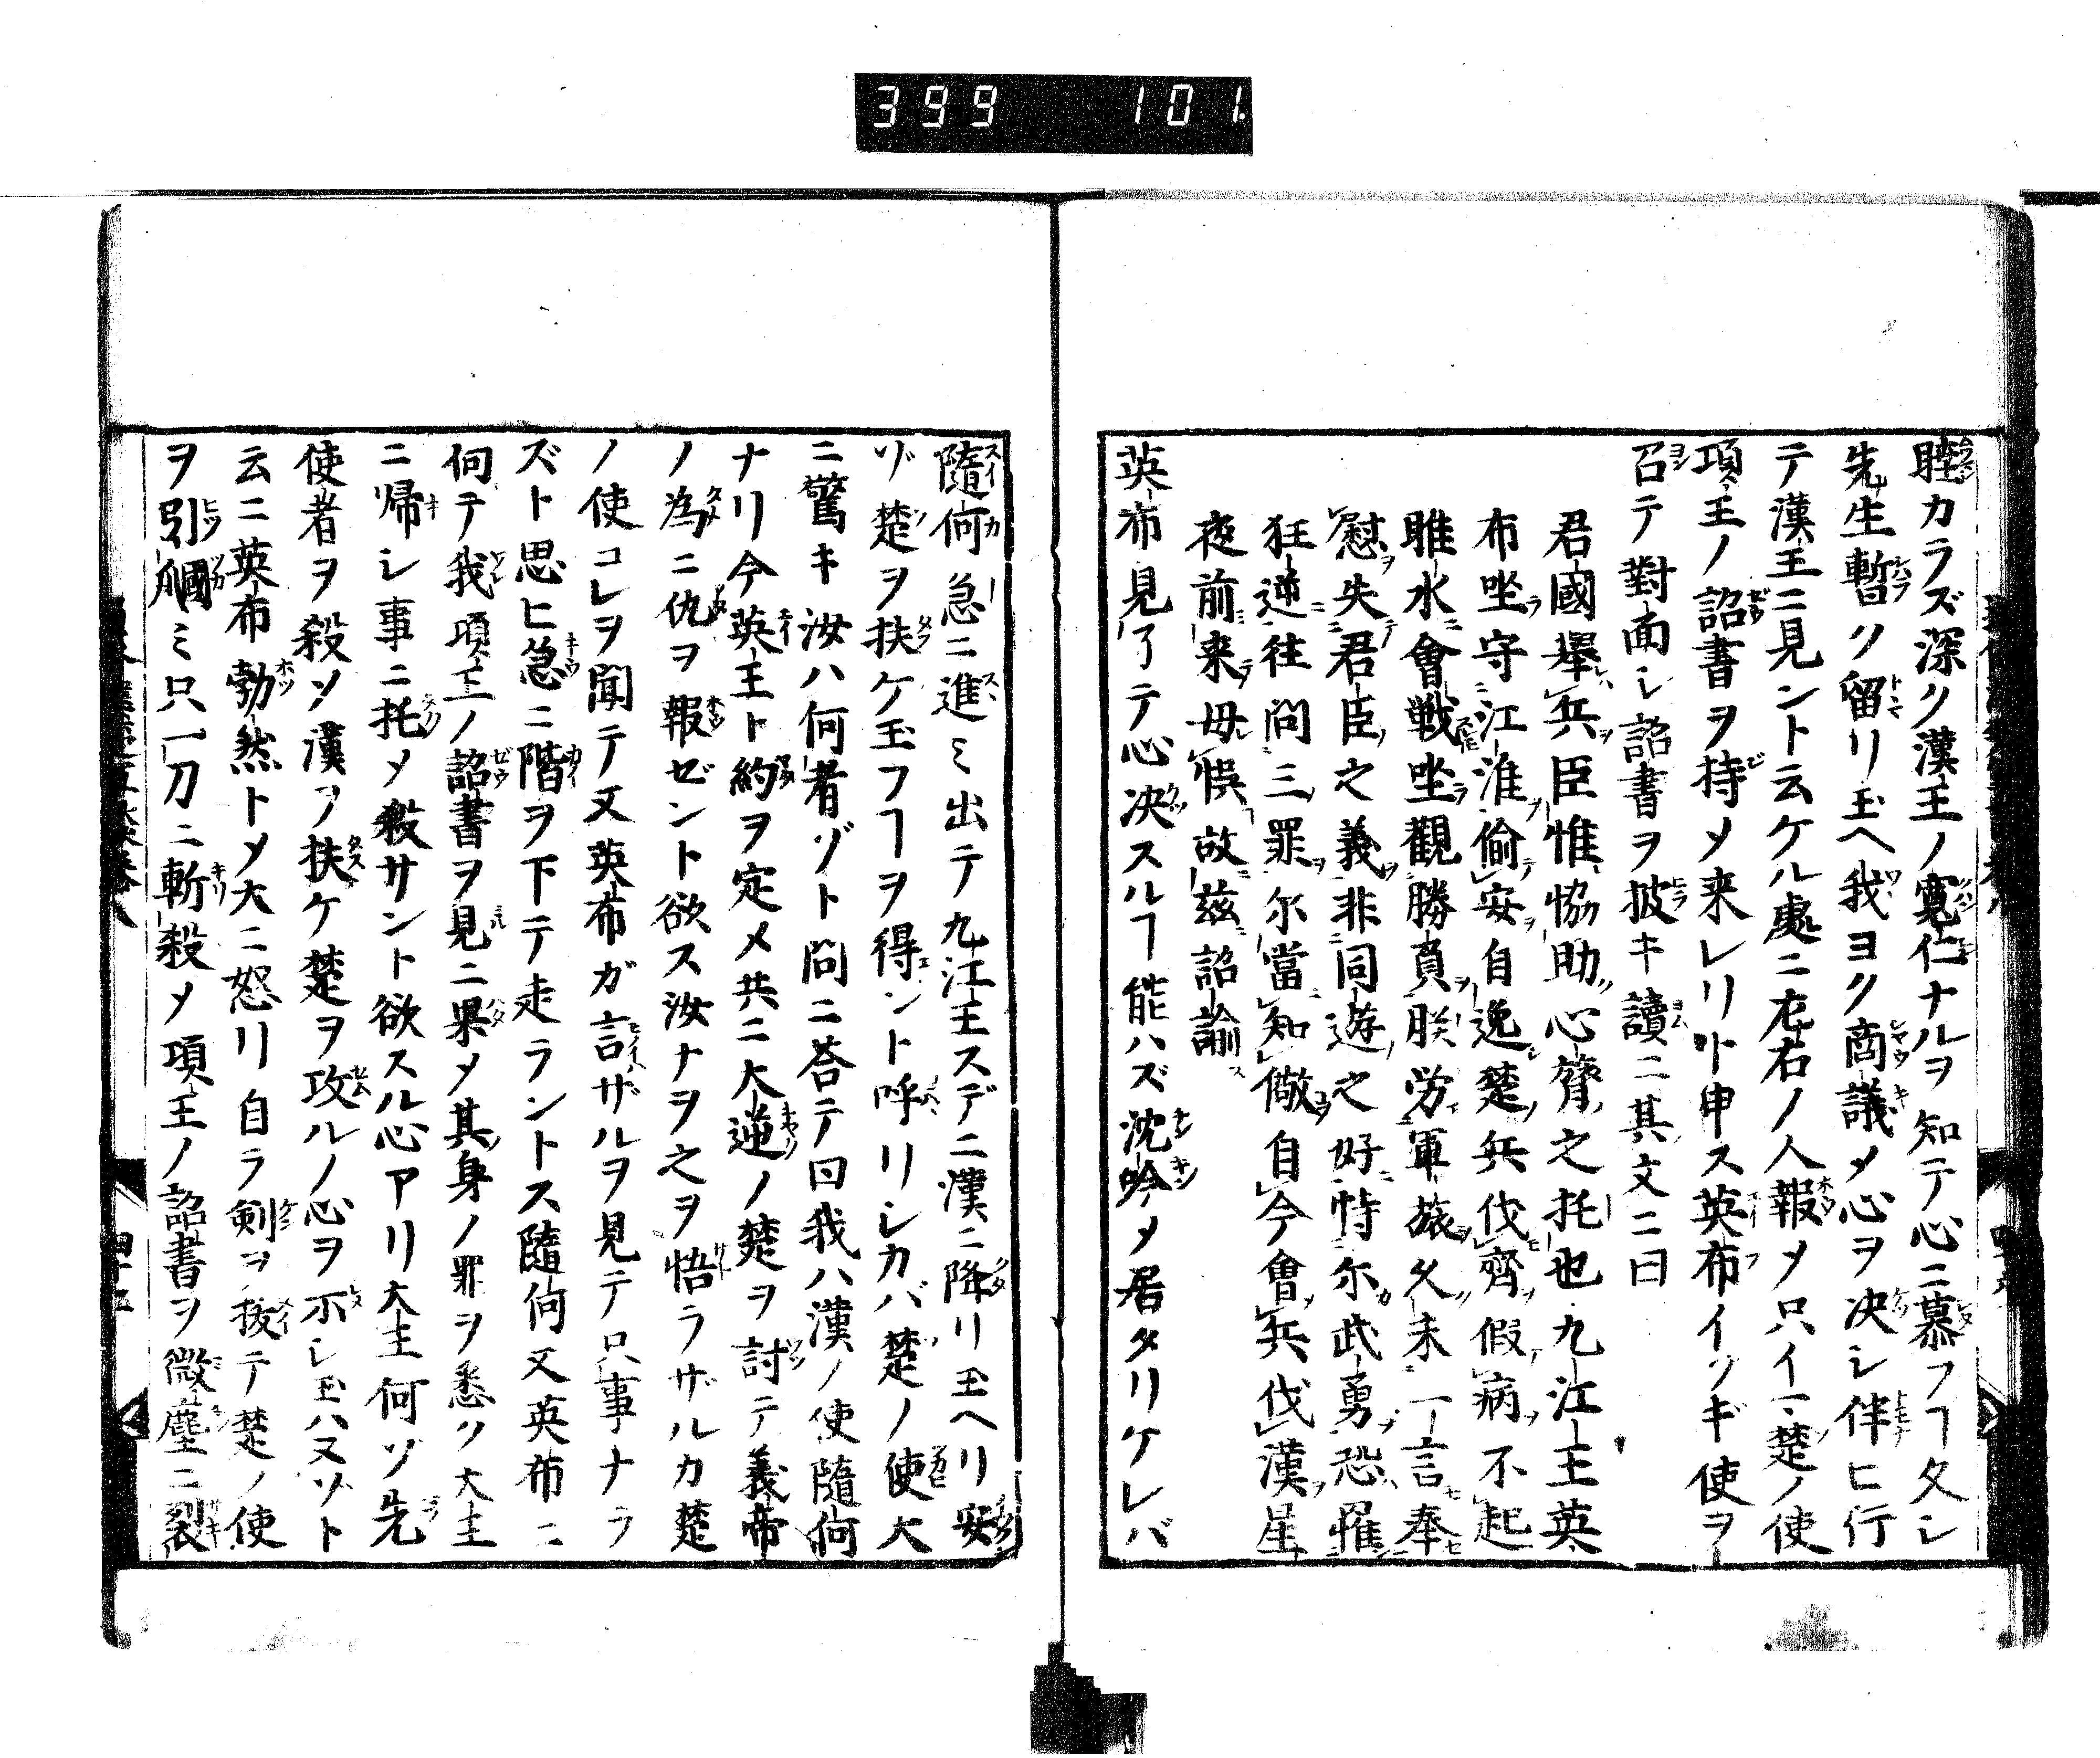 399 101
睦カラズ深ク漢王ノ寛仁ナルヲ知テ心ニ慕フヿ久シ
先生暫ク留リ玉ヘ我ヨク商議メ心ヲ决シ伴ヒ行
テ漢王ニ見ント云ケル處ニ左右ノ人報メ只イマ楚ノ使
項王ノ詔書ヲ持メ来レリト申ス英布イソギ使ヲ
召テ對面シ詔書ヲ披キ讀ニ其文ニ曰
君國擧兵臣惟恊助心膂之托也九江王英
布坐守江淮偷安自逸楚兵伐齊假病不起
睢水會戰坐觀勝負朕労軍旅久未一言奉
慰失君臣之義非同遊之好恃尔武勇恐罹
狂逆往問三罪尔當知儆自今會兵伐漢星
夜前来毋悞故茲詔諭
英布見了テ心决スルヿ能ハズ沈吟メ居タリケレバ
隨何急ニ進ミ出テ九江王スデニ漢ニ降リ玉ヘリ安
ゾ楚ヲ扶ケ玉フヿヲ得ント呼リシカバ楚ノ使大
ニ驚キ汝ハ何者ゾト問ニ荅テ曰我ハ漢ノ使隨何
ナリ今英王ト約ヲ定メ共ニ大逆ノ楚ヲ討テ義帝
ノ為ニ仇ヲ報ゼント欲ス汝ナヲ之ヲ悟ラザルカ楚
ノ使コレヲ聞テ又英布ガ言ザルヲ見テ只事ナラ
ズト思ヒ急ニ階ヲ下テ走ラントス隨何又英布ニ
何テ我項王ノ詔書ヲ見ニ果メ其身ノ罪ヲ悉ク大王
ニ帰シ事ニ托メ殺サント欲スル心アリ大王何ゾ先
使者ヲ殺ソ漢ヲ扶ケ楚ヲ攻ルノ心ヲ示シ玉ハヌゾト
云ニ英布勃然トメ大ニ怒リ自ラ剣ヲ抜テ楚ノ使
ヲ引摑ミ只一刀ニ斬殺メ項王ノ詔書ヲ微塵ニ裂